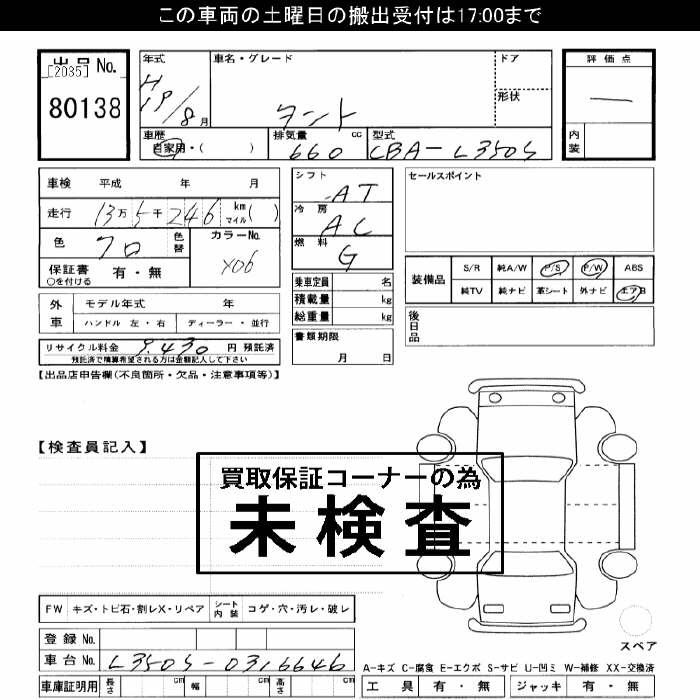 この車両の土曜日の搬出受付は17:00まで
出品No.
[2035]
80138
年式
H19/8月
車名・グレード
タント
ドア
形状
評価点
―
内装
車歴
自家用・(　　)
排気量
660 cc
型式
CBA-L350S
車検 平成　年　月
走行 13万5千246 km マイル( )
色 クロ 色替
カラーNo.
X06
保証書 有・無
○を付ける
シフト AT
冷房 AC
燃料 G
セールスポイント
装備品
S/R 純A/W P/S P/W ABS
純TV 純ナビ 革シート 外ナビ エアB
外車
モデル年式　年
ハンドル 左・右 ディーラー・並行
乗車定員 名
積載量 kg
総重量 kg
後日品
リサイクル料金 9,430 円 預託済
預託済で精算希望される方は金額記入して下さい
書類期限
月　日
【出品店申告欄(不良箇所・欠品・注意事項等)】
【検査員記入】
買取保証コーナーの為
未検査
FW キズ・トビ石・割レX・リペア シート内装 コゲ・穴・汚レ・破レ
スペア
登録No.
車台No. L350S-0316646
A-キズ C-腐食 E-エクボ S-サビ U-凹ミ W-補修 XX-交換済
車庫証明用 長さ cm 幅 cm 高さ cm
工具 有・無 ジャッキ 有・無